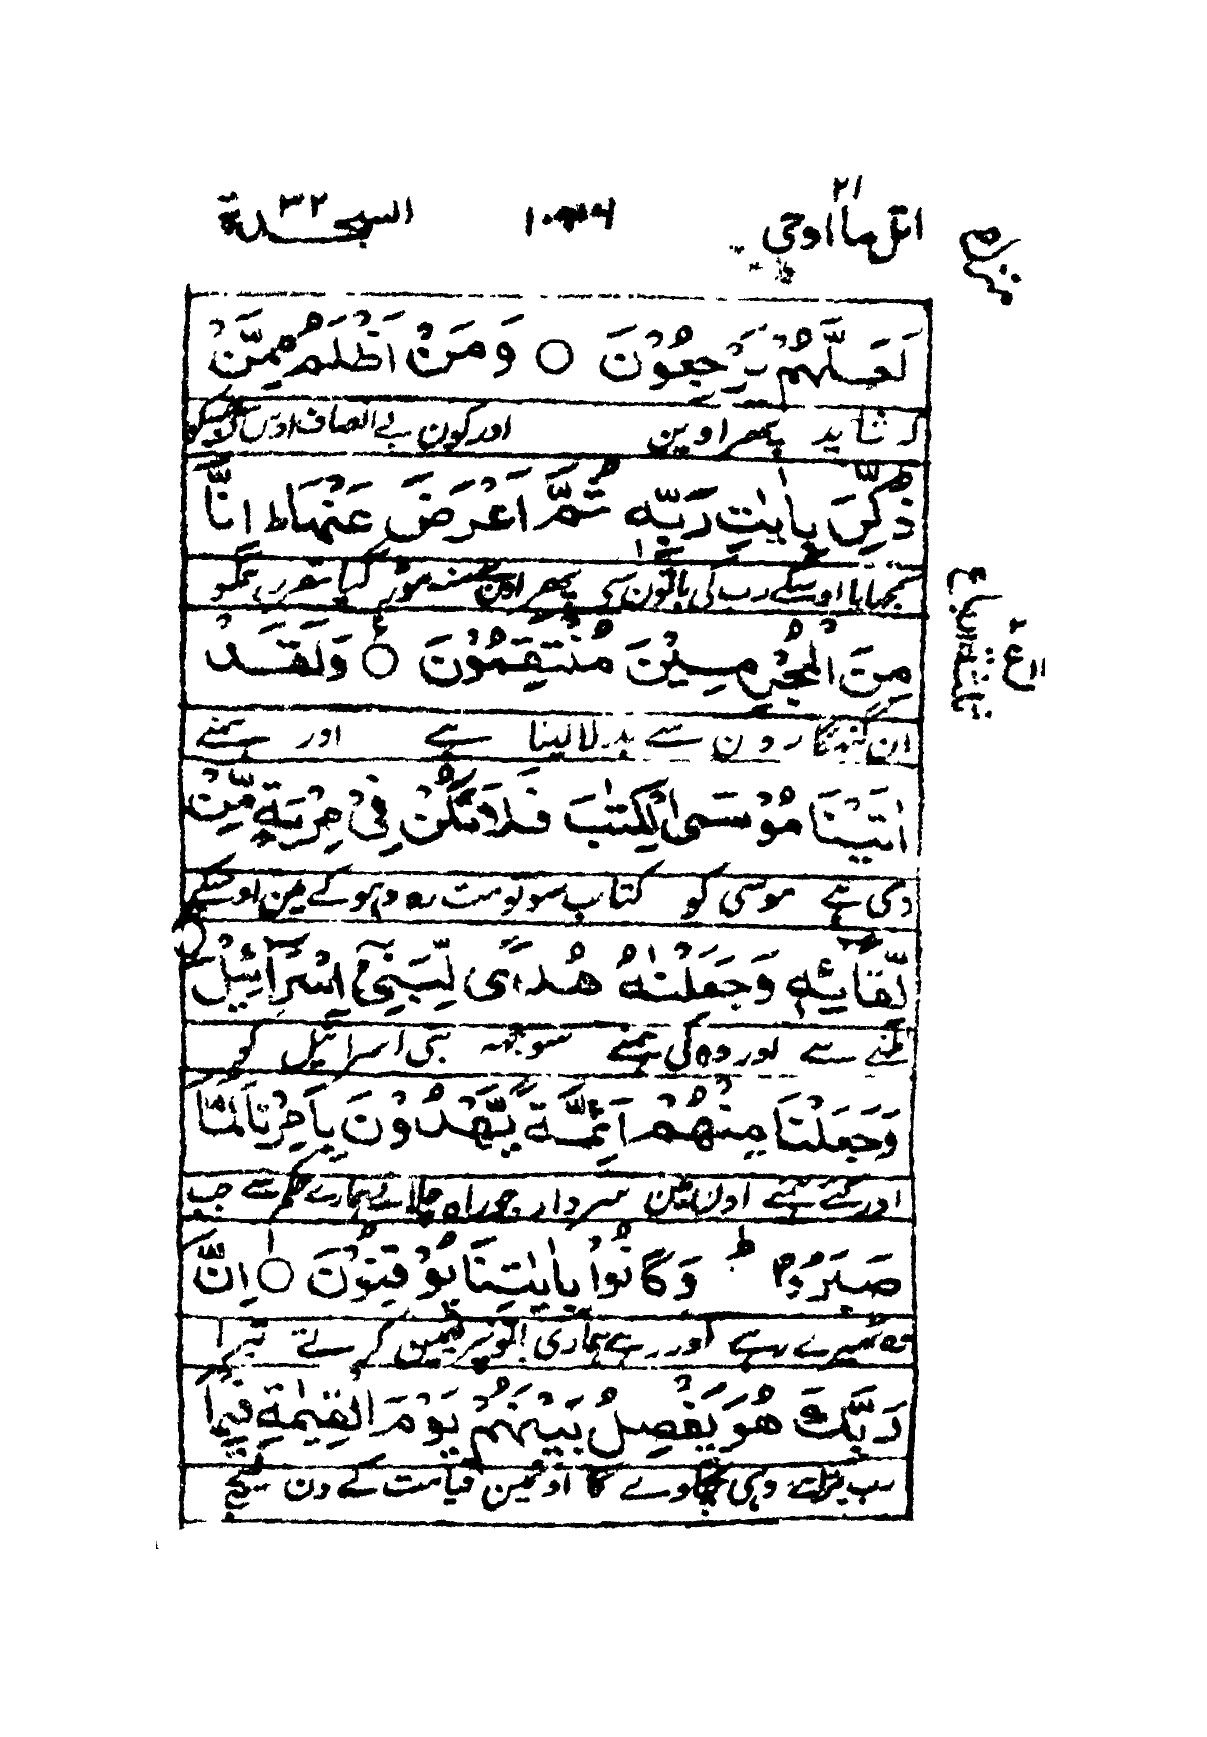 اتل ما اوحی ۲۱
السجدة ۳۲
لَعَلَّهُمْ يَرْجِعُوْنَ ○ وَمَنْ اَظْلَمُ مِمَّنْ
کہ شاید پھر اوین اور کون بے انصاف اوس سے
ذُكِّرَ بِاٰيٰتِ رَبِّهٖ ثُمَّ اَعْرَضَ عَنْهَا ط اِنَّا
سمجھایا اوسکے رب کی باتون سی پھر اون سے منہ موڑ گیا مقرر ہمکو
مِنَ الْمُجْرِمِيْنَ مُنْتَقِمُوْنَ ○ وَلَقَدْ
ان گنہگارون سے بدلا لینا ہے اور ہمنے
اٰتَيْنَا مُوْسَى الْكِتٰبَ فَلَا تَكُنْ فِيْ مِرْيَةٍ مِّنْ
دی ہے موسی کو کتاب سو تو مت رہ دھوکے مین اوسکے
لِّقَآئِهٖ وَجَعَلْنٰهُ هُدًى لِّبَنِيْٓ اِسْرَآئِيْلَ
ملنے سے اور وہ کی ہمنے سوجھ بنی اسرائیل کو
وَجَعَلْنَا مِنْهُمْ اَئِمَّةً يَّهْدُوْنَ بِاَمْرِنَا لَمَّا
اور کئے ہمنے اون مین سردار جو راہ چلاتے ہمارے حکم سے جب
صَبَرُوْا ط وَكَانُوْا بِاٰيٰتِنَا يُوْقِنُوْنَ ○ اِنَّ
وہ ٹھیرے رہے اور رہے ہماری باتوں پر یقین کرتے تیرا
رَبَّكَ هُوَ يَفْصِلُ بَيْنَهُمْ يَوْمَ الْقِيٰمَةِ فِيْمَا
رب وہی گا اونمین قیامت کے دن